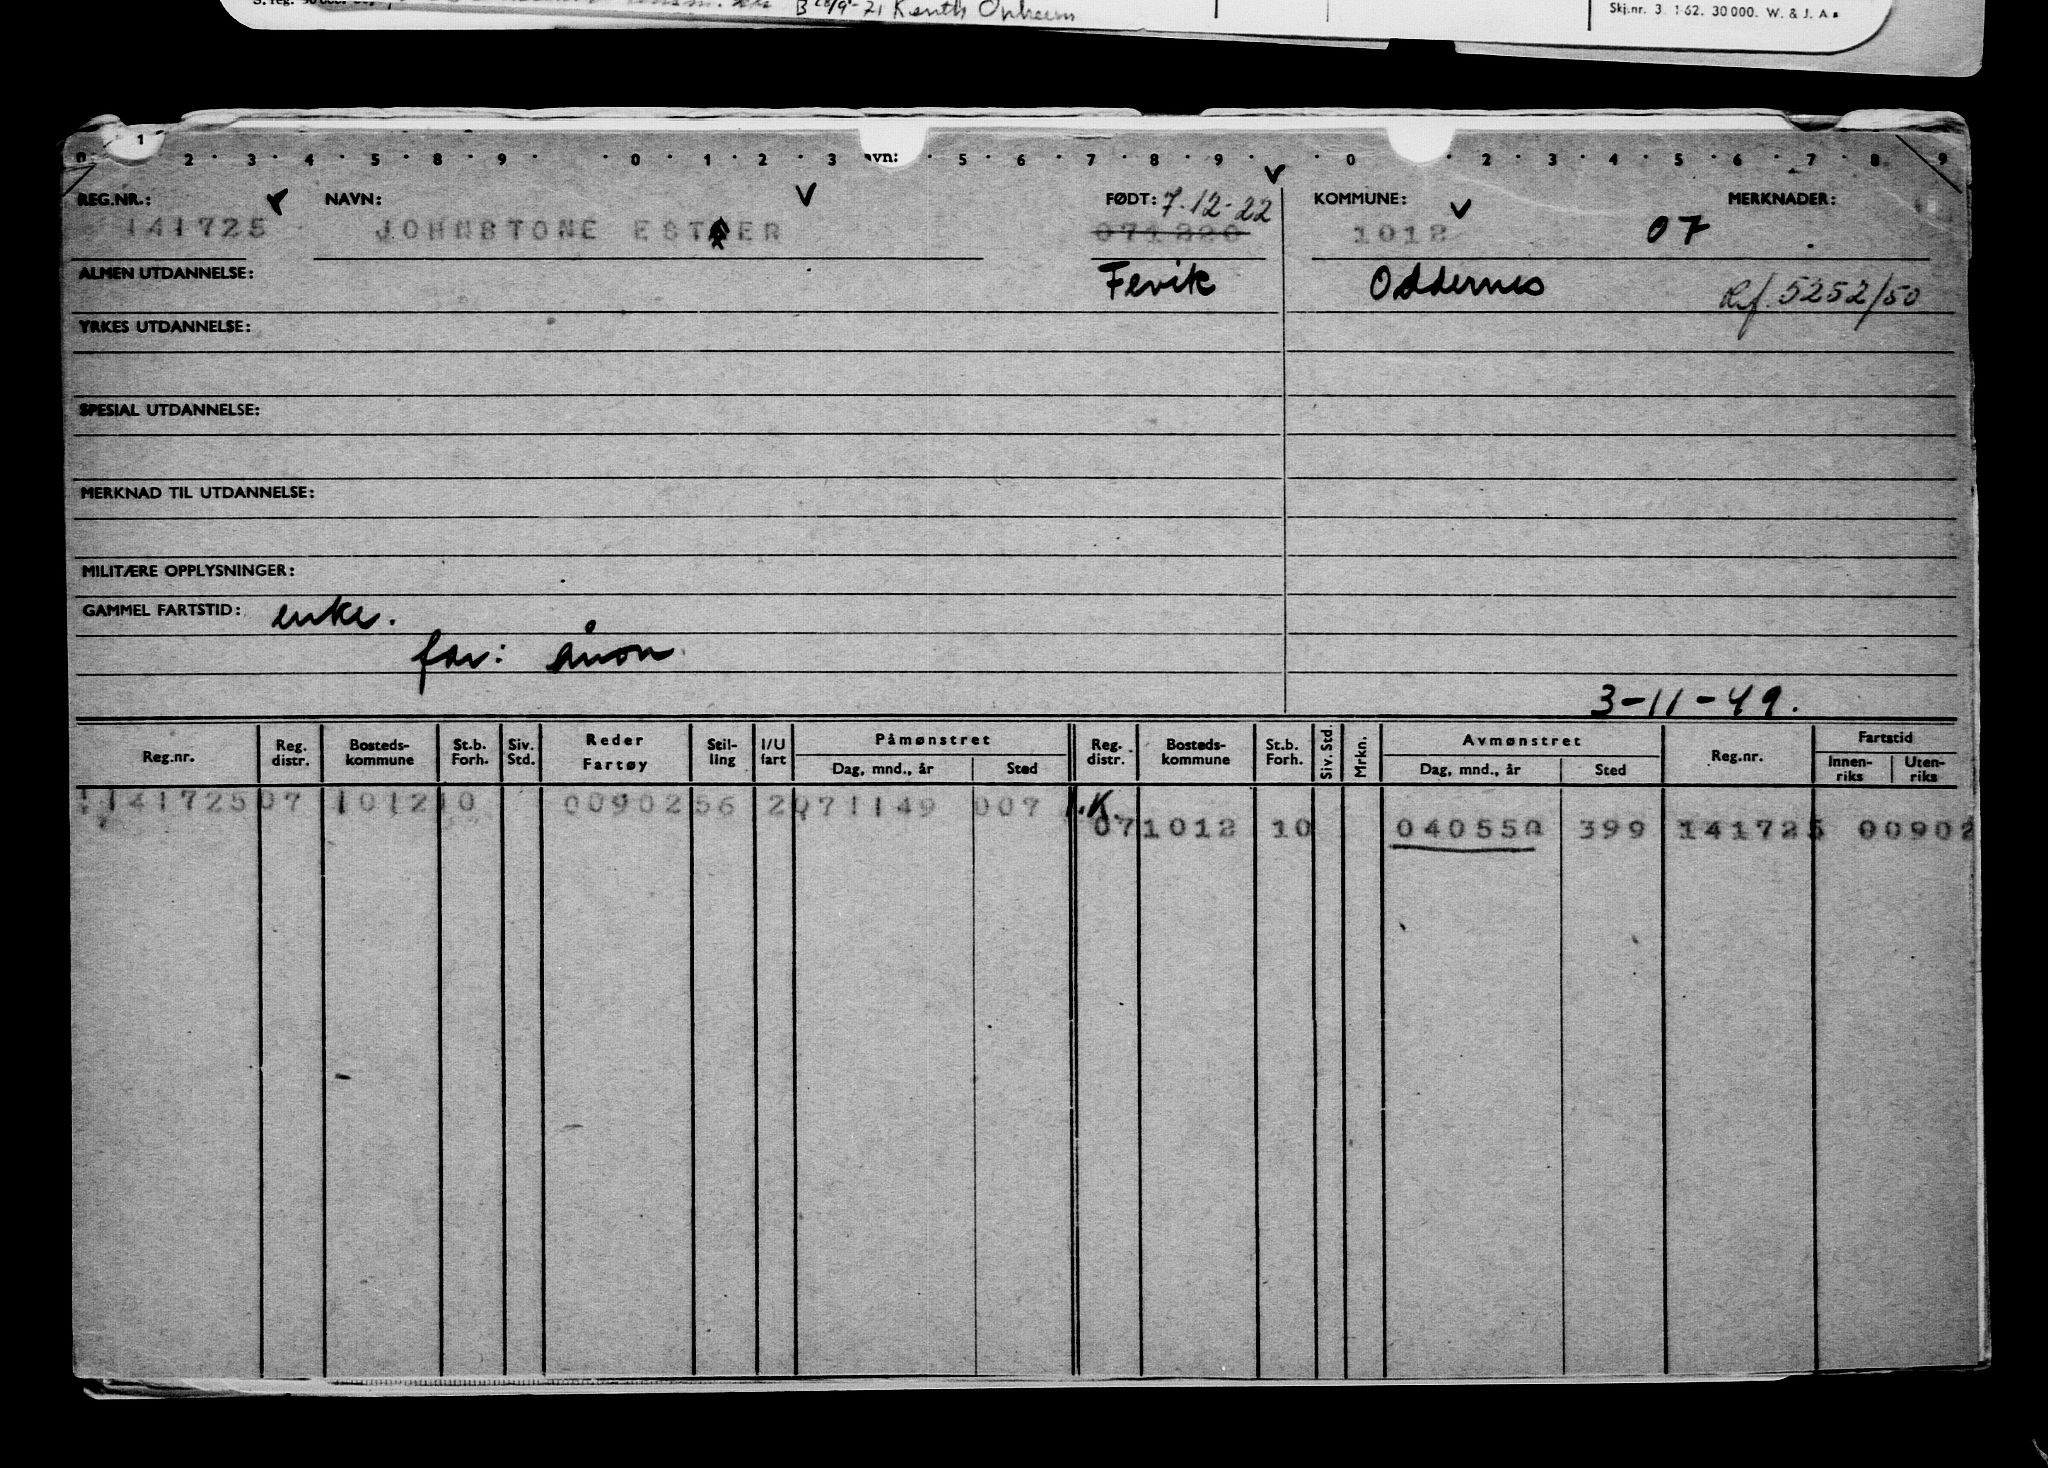 Kenth Opheim
Skj.nr. 3 1-62. 30 000. W. & J. A.
0 1 2 3 4 5 8 9 0 1 2 3 avn: 5 6 7 8 9 0 2 3 4 5 6 7 8 9
REG.NR.: NAVN: FØDT: 7-12-22 KOMMUNE: MERKNADER:
141725 JOHNSTONE ESTER 071220 1012 07
ALMEN UTDANNELSE: Fevik Oddernes Ref. 5252/50
YRKES UTDANNELSE:
SPESIAL UTDANNELSE:
MERKNAD TIL UTDANNELSE:
MILITÆRE OPPLYSNINGER:
GAMMEL FARTSTID: enke.
far: Ånon
3-11-49.
Reg.nr. Reg. distr. Bosteds-kommune St.b. Forh. Siv. Std. Reder Fartøy Stil-ling I/U fart Påmønstret Dag, mnd., år Sted Reg. distr. Bosteds-kommune St.b. Forh. Siv. Std. Mrkn. Avmønstret Dag, mnd., år Sted Reg.nr. Fartstid Innen-riks Uten-riks
141725 07 1012 10 00902 56 2 071149 007 I.K.
07 1012 10 040550 399 141725 00902